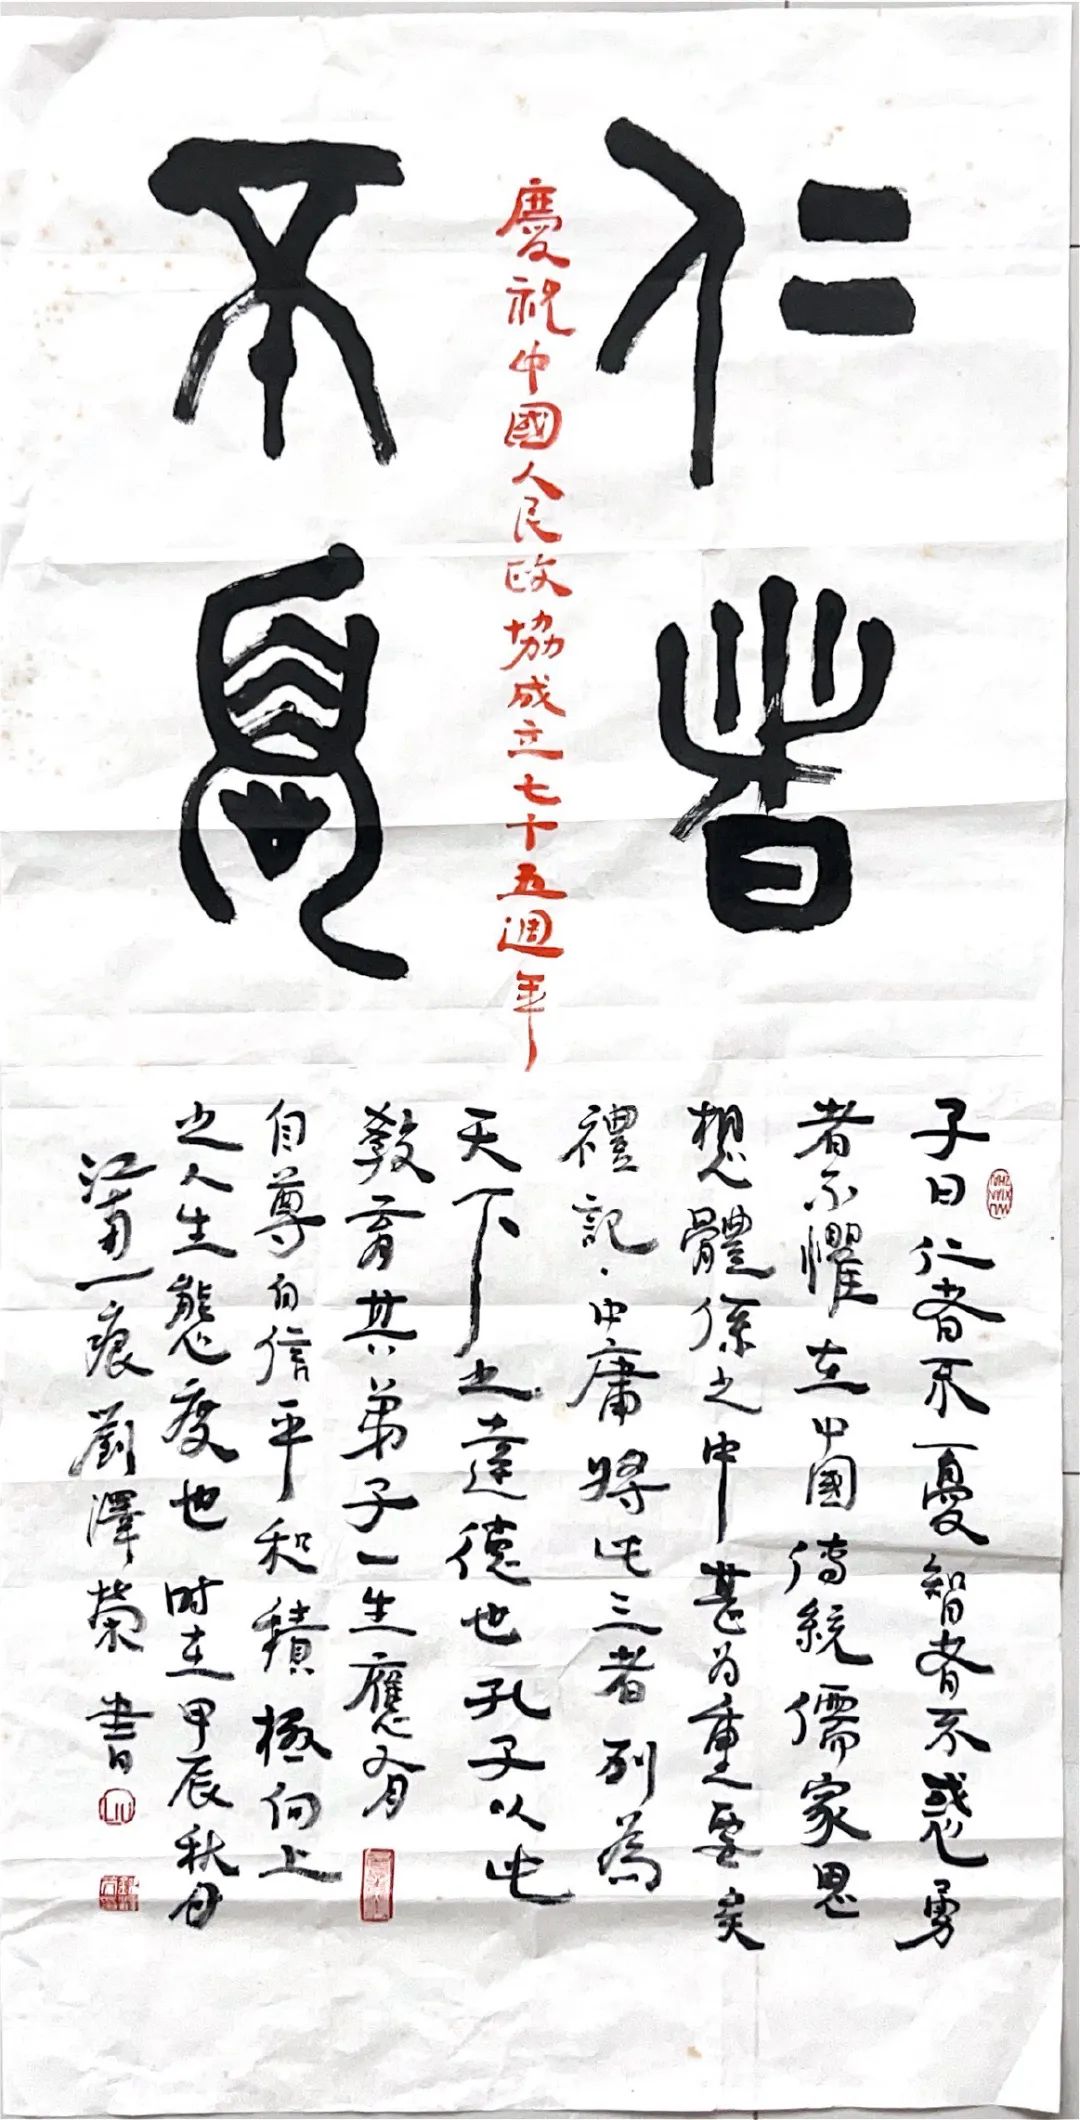 仁者
不憂
慶祝中國人民政協成立七十五週年
子曰仁者不憂智者不惑勇
者不懼在中國傳統儒家思
想體系之中甚為重要矣
禮記·中庸將此三者列為
天下之達德也孔子以此
教育其弟子一生應有
自尊自信平和積極向上
之人生態度也時在甲辰秋月
江南一痕劉澤榮書
LIU